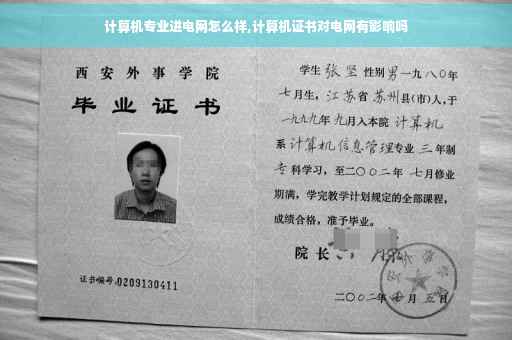 计算机专业进电网怎么样,计算机证书对电网有影响吗
西安外事学院
毕业证书
证书编号:0209130411
学生 张坚 性别 男 一九八〇年
七月生, 江苏省 苏州县(市)人, 于
一九九九年 九月入本院 计算机
系 计算机信息管理专业 三年制
专科学习, 至二〇〇二年 七月修业
期满, 学完教学计划规定的全部课程,
成绩合格, 准予毕业。
院长
二〇〇二年 月 五日